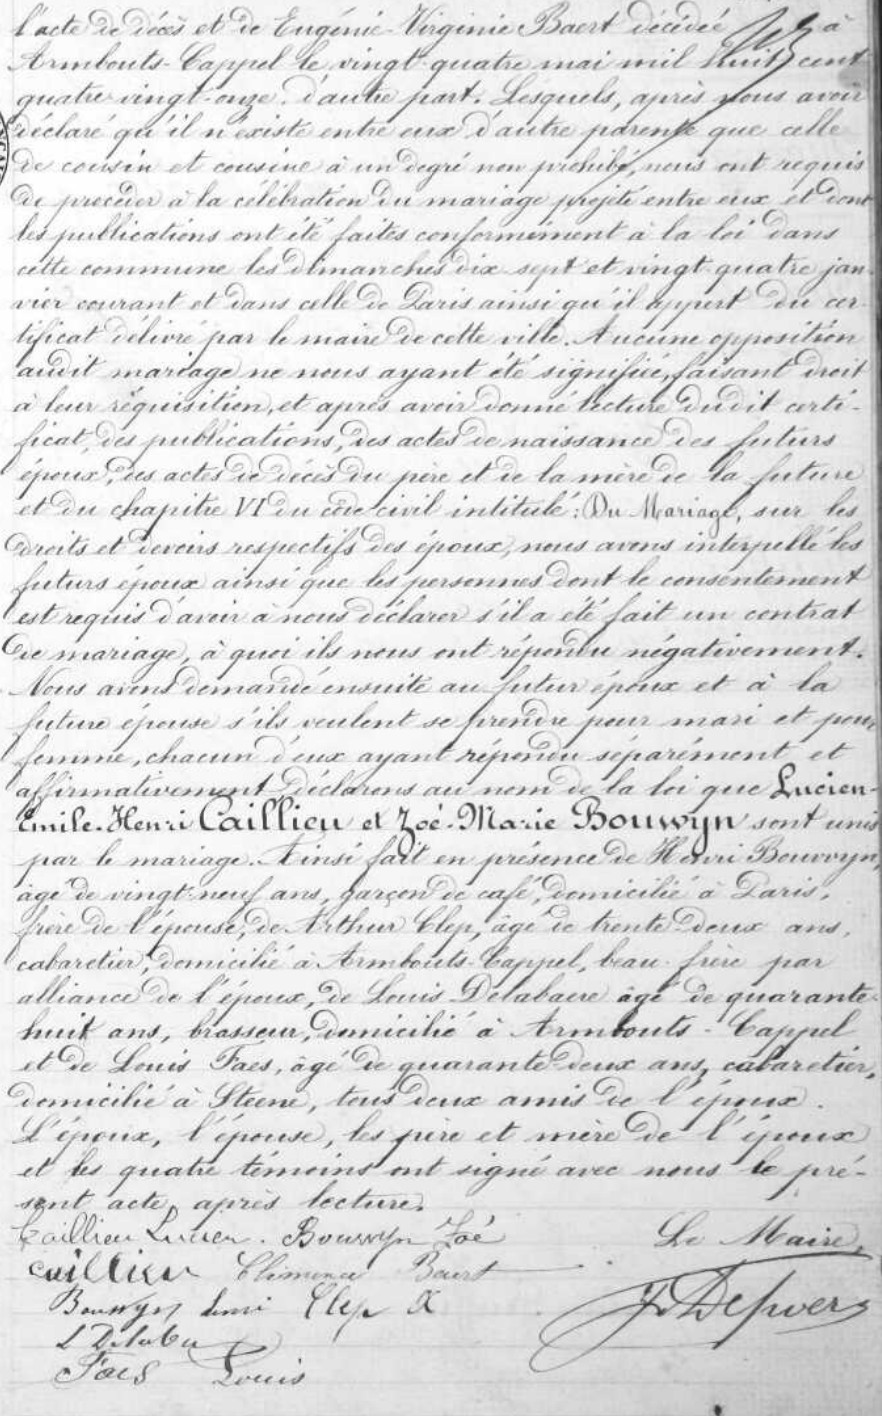 l'acte de décès et de Eugénie-Virginie Baert décédée à
Armbouts-Cappel le vingt-quatre mai mil huit cent
quatre-vingt-onze, d'autre part. Lesquels, après nous avoir
déclaré qu'il n'existe entre eux d'autre parenté que celle
de cousin et cousine à un degré non prohibé, nous ont requis
de procéder à la célébration du mariage projeté entre eux et dont
les publications ont été faites conformément à la loi dans
cette commune les dimanches dix-sept et vingt-quatre jan-
vier courant et dans celle de Paris ainsi qu'il appert du cer-
tificat délivré par le maire de cette ville. Aucune opposition
audit mariage ne nous ayant été signifiée, faisant droit
à leur réquisition, et après avoir donné lecture du dit certi-
ficat, des publications, des actes de naissance des futurs
époux, des actes de décès du père et de la mère de la future
et du chapitre VI du code civil intitulé: Du Mariage, sur les
droits et devoirs respectifs des époux, nous avons interpellé les
futurs époux ainsi que les personnes dont le consentement
est requis d'avoir à nous déclarer s'il a été fait un contrat
de mariage, à quoi ils nous ont répondu négativement.
Nous avons demandé ensuite au futur époux et à la
future épouse s'ils veulent se prendre pour mari et pour
femme, chacun d'eux ayant répondu séparément et
affirmativement déclarons au nom de la loi que Lucien-
Emile-Henri Caillieu et Zoé-Marie Bouwyn sont unis
par le mariage. Ainsi fait en présence de Henri Bouwyn,
âgé de vingt-neuf ans, garçon de café, domicilié à Paris,
frère de l'épouse, de Arthur Clep, âgé de trente-deux ans,
cabaretier, domicilié à Armbouts-Cappel, beau-frère par
alliance de l'époux, de Louis Delabaere âgé de quarante-
huit ans, brasseur, domicilié à Armbouts-Cappel
et de Louis Faes, âgé de quarante-deux ans, cabaretier,
domicilié à Steene, tous deux amis de l'époux.
L'époux, l'épouse, les père et mère de l'époux
et les quatre témoins ont signé avec nous le pré-
sent acte, après lecture.
Caillieu Lucien. Bouwyn Zoé Le Maire,
Caillieu Clémence Baert
Bouwyn henri Clep
L Delaba
Faes Louis